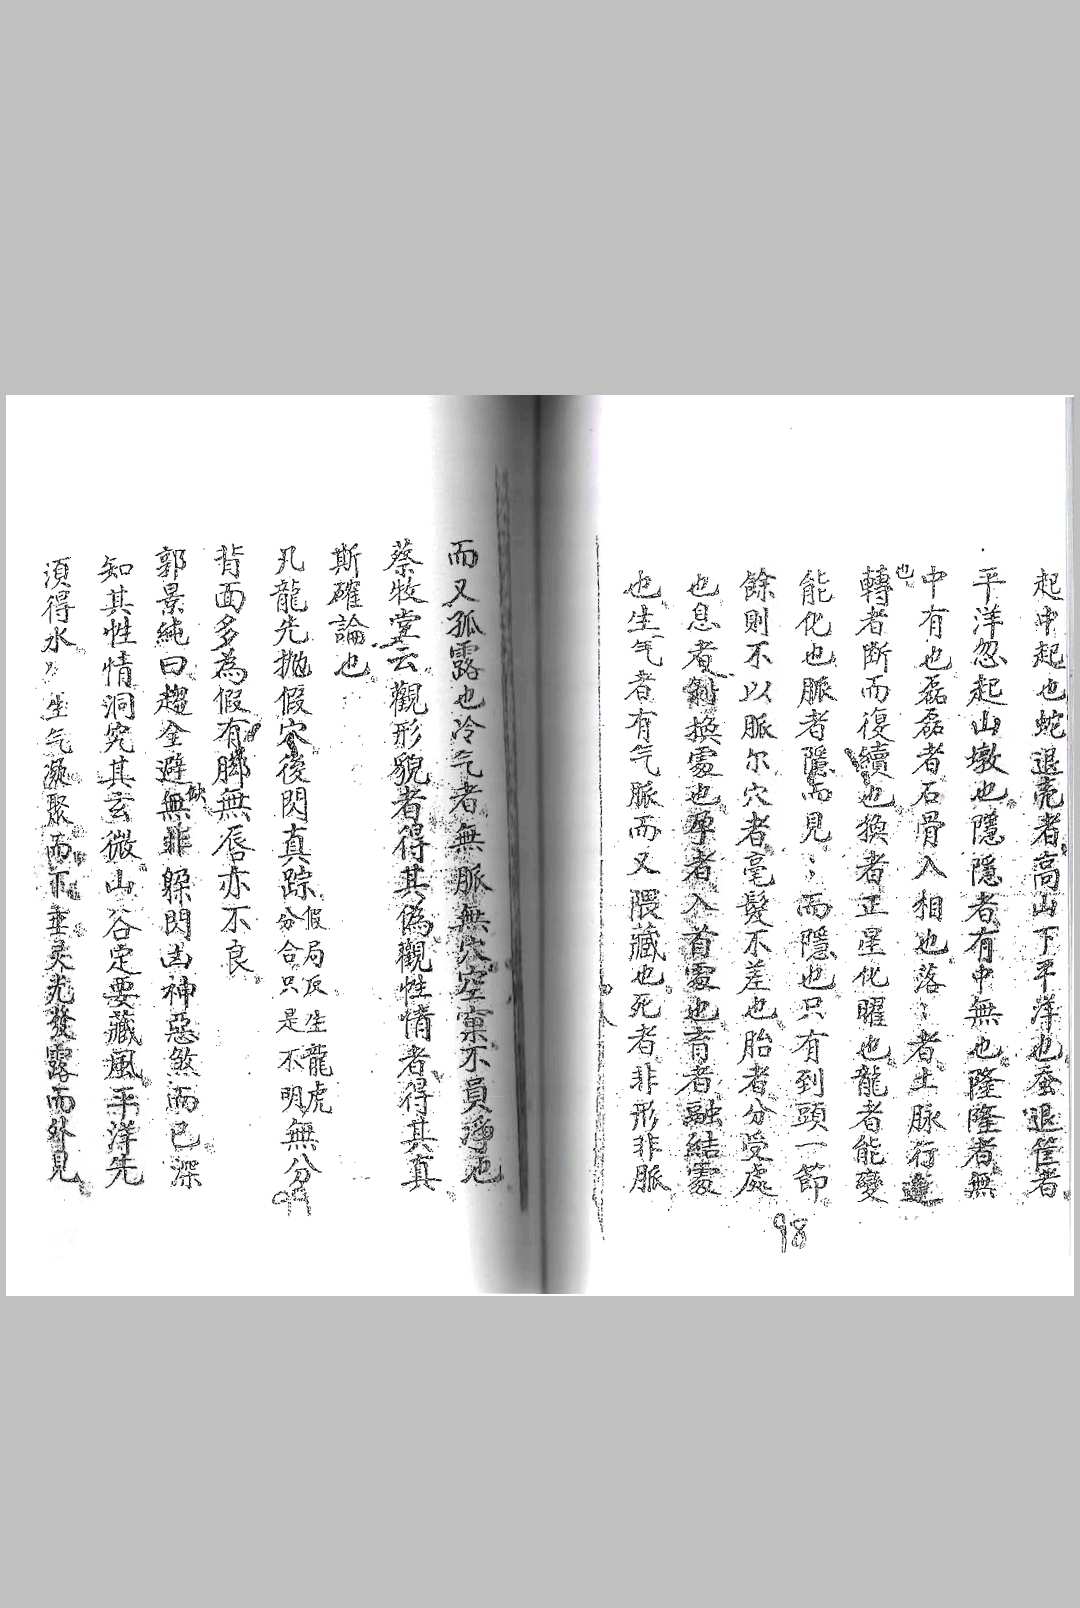 起中起也蛇退亮者高山下平洋也蚕退筐者
平洋忽起山墩也隱隱者有中無也隆隆者無
中有也磊磊者石骨入相也落々者土脉行
也
轉者斷而復續也換者正星化曜也龍者能變
能化也脈者隱而見々而隱也只有到頭一節
餘則不以脈尔穴者毫髮不差也胎者分受處
也息者剝換處也孕者入首處也育者融結處
也生气者有气脈而又隈藏也死者非形非脈
98
而又孤露也冷气者無脈無穴空窠不員也
蔡牧堂云觀形貌者得其偽觀性情者得其真
斯確論也
凡龍先拋假穴後閃真踪假局反生龍虎
分合只是不明無分
背面多為假有脚無唇亦不良
郭景純曰趨全避缺無非躱閃凶神惡煞而已深
知其性情洞究其玄微山谷定要藏風平洋先
須得水々生气凝聚而下垂灵光發露而外見
99